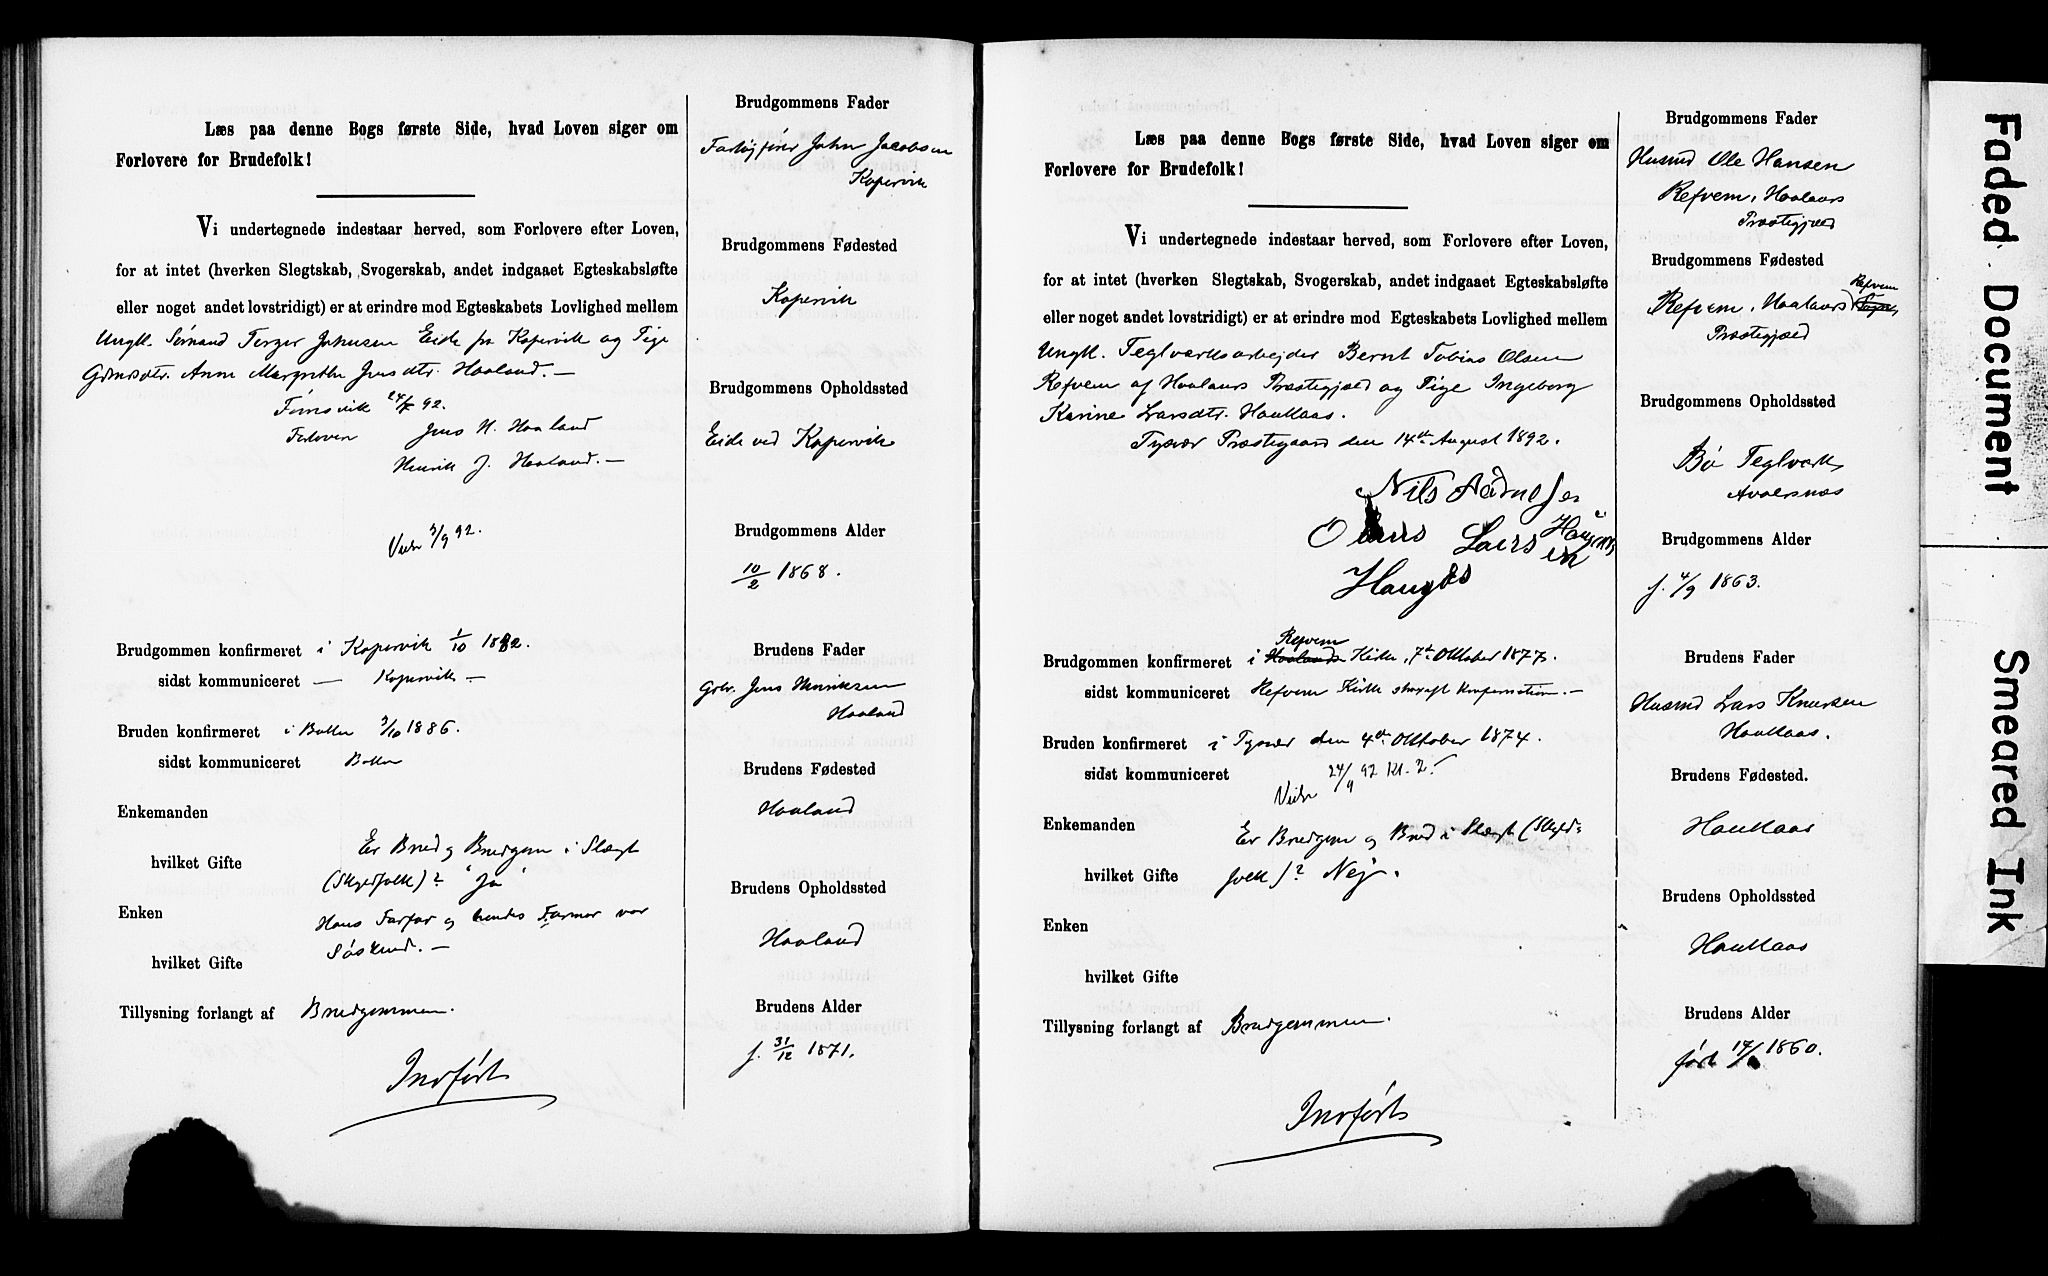 Læs paa denne Bogs første Side, hvad Loven siger om
Forlovere for Brudefolk!
Vi undertegnede indestaar herved, som Forlovere efter Loven,
for at intet (hverken Slegtskab, Svogerskab, andet indgaaet Egteskabsløfte
eller noget andet lovstridigt) er at erindre mod Egteskabets Lovlighed mellem
Ungk. Sømand Johnsen Eide fra Kopervik og Pige
Anne Margrethe Jensdtr. Haaland.—
92.
Forlovere Jens H. Haaland
Henrik J. Haaland.—
Viede 3/9 92.
Brudgommen konfirmeret i Kopervik 1/10 1882.
sidst kommuniceret — Kopervik —
Bruden konfirmeret i Bokn 3/10 1886.
sidst kommuniceret Bokn
Enkemanden
Er Brud og Brudgom i Slægt
hvilket Gifte
(Skyldfolk)? "Ja"
Enken
Hans Farfar og hendes Farmor var
Søskend.—
hvilket Gifte
Tillysning forlangt af Brudgommen.
Indført
Brudgommens Fader
Fartøjfører John Jacobsen
Kopervik
Brudgommens Fødested
Kopervik
Brudgommens Opholdssted
Eide ved Kopervik
Brudgommens Alder
10/2 1868.
Brudens Fader
Gbr. Jens Henriksen
Haaland
Brudens Fødested
Haaland
Brudens Opholdssted
Haaland
Brudens Alder
f. 31/12 1871.
Læs paa denne Bogs første Side, hvad Loven siger om
Forlovere for Brudefolk!
Vi undertegnede indestaar herved, som Forlovere efter Loven,
for at intet (hverken Slegtskab, Svogerskab, andet indgaaet Egteskabsløfte
eller noget andet lovstridigt) er at erindre mod Egteskabets Lovlighed mellem
Ungk. Teglværksarbejder Bernt Tobias Olsen
Refvem af Haalands Præstegjæld og Pige Ingeborg
Karine Larsdtr. Haukaas.
Tysvær Præstegaard den 14de August 1892.
Nils
Olaus Larsen
Brudgommen konfirmeret i Refvem Kirke, 7de Oktober 1877.
sidst kommuniceret Refvem Kirke straxst Konfirmation.—
Bruden konfirmeret i Tysvær den 4de Oktober 1874.
sidst kommuniceret
Viede 24/9 92 Kl. 2.
Enkemanden
Er Brudgom og Brud i Slægt (Skyld=
hvilket Gifte folk)? Nej.
Enken
hvilket Gifte
Tillysning forlangt af Brudgommen.
Indført
Brudgommens Fader
Husmd Ole Hansen
Refvem, Haalands
Præstegjæld
Brudgommens Fødested
Refvem
Refvem, Haalands
Præstegjæld
Brudgommens Opholdssted
Bø Teglværk
Avaldsnæs
Brudgommens Alder
f. 4/9 1863.
Brudens Fader
Husmd Lars Knutsen
Haukaas.
Brudens Fødested.
Haukaas
Brudens Opholdssted
Haukaas
Brudens Alder
født 1860.
Faded Document
Smeared Ink